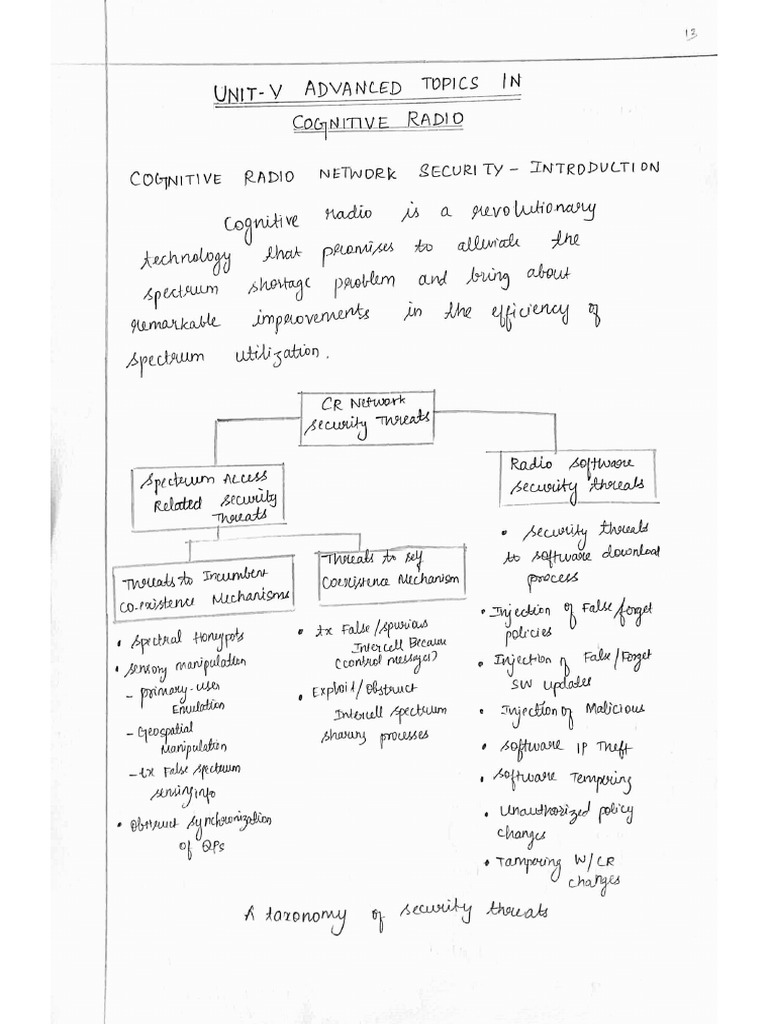 13
UNIT-V ADVANCED TOPICS IN
COGNITIVE RADIO
COGNITIVE RADIO NETWORK SECURITY - INTRODUCTION
Cognitive radio is a revolutionary
technology that promises to alleviate the
spectrum shortage problem and bring about
remarkable improvements in the efficiency of
spectrum utilization.
CR Network
Security Threats
Spectrum Access
Related Security
Threats
Radio Software
Security threats
Threats to Incumbent
Co-existence Mechanisms
• Spectral Honeypots
• Sensory manipulation
- primary-user
Emulation
- Geospatial
Manipulation
- tx False spectrum
sensing info
• Obstruct synchronization
of QPs
Threats to self
Coexistence Mechanism
• tx False/spurious
Intercell Because
(control messages)
• Exploit/Obstruct
Intercell spectrum
sharing processes
• Security threats
to software download
process
• Injection of False forget
policies
• Injection of False/Forget
SW updates
• Injection of Malicious
• Software IP Theft
• Software Tempering
• Unauthorized policy
changes
• Tampering W/CR
changes
A taxonomy of security threats